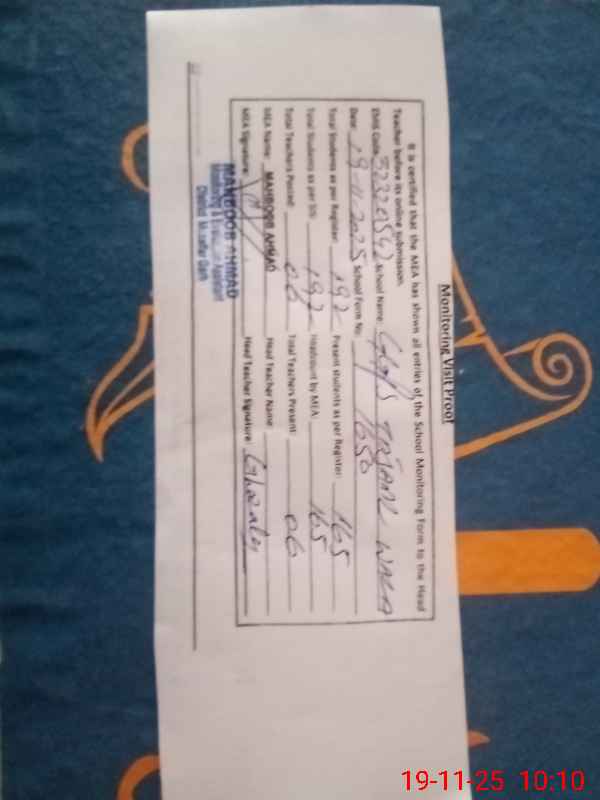 Monitoring Visit Proof
It is certified that the MEA has shown all entries of the School Monitoring Form to the Head
Teacher before its online submission.
EMIS Code: 32320542 School Name: WALA
Date: 19-11-2025 School Form No: 1650
Total Students as per Register: 192 Present students as per Register: 165
Total Students as per SIS: 192 Headcount by MEA: 165
Total Teachers Posted: 06 Total Teachers Present: 06
MEA Name: MAHBOOB AHMAD Head Teacher Name:
MEA Signature: Head Teacher Signature:
MAHBOOB AHMAD
Monitoring & Evaluation Assistant
District Muzaffar Garh
19-11-25 10:10